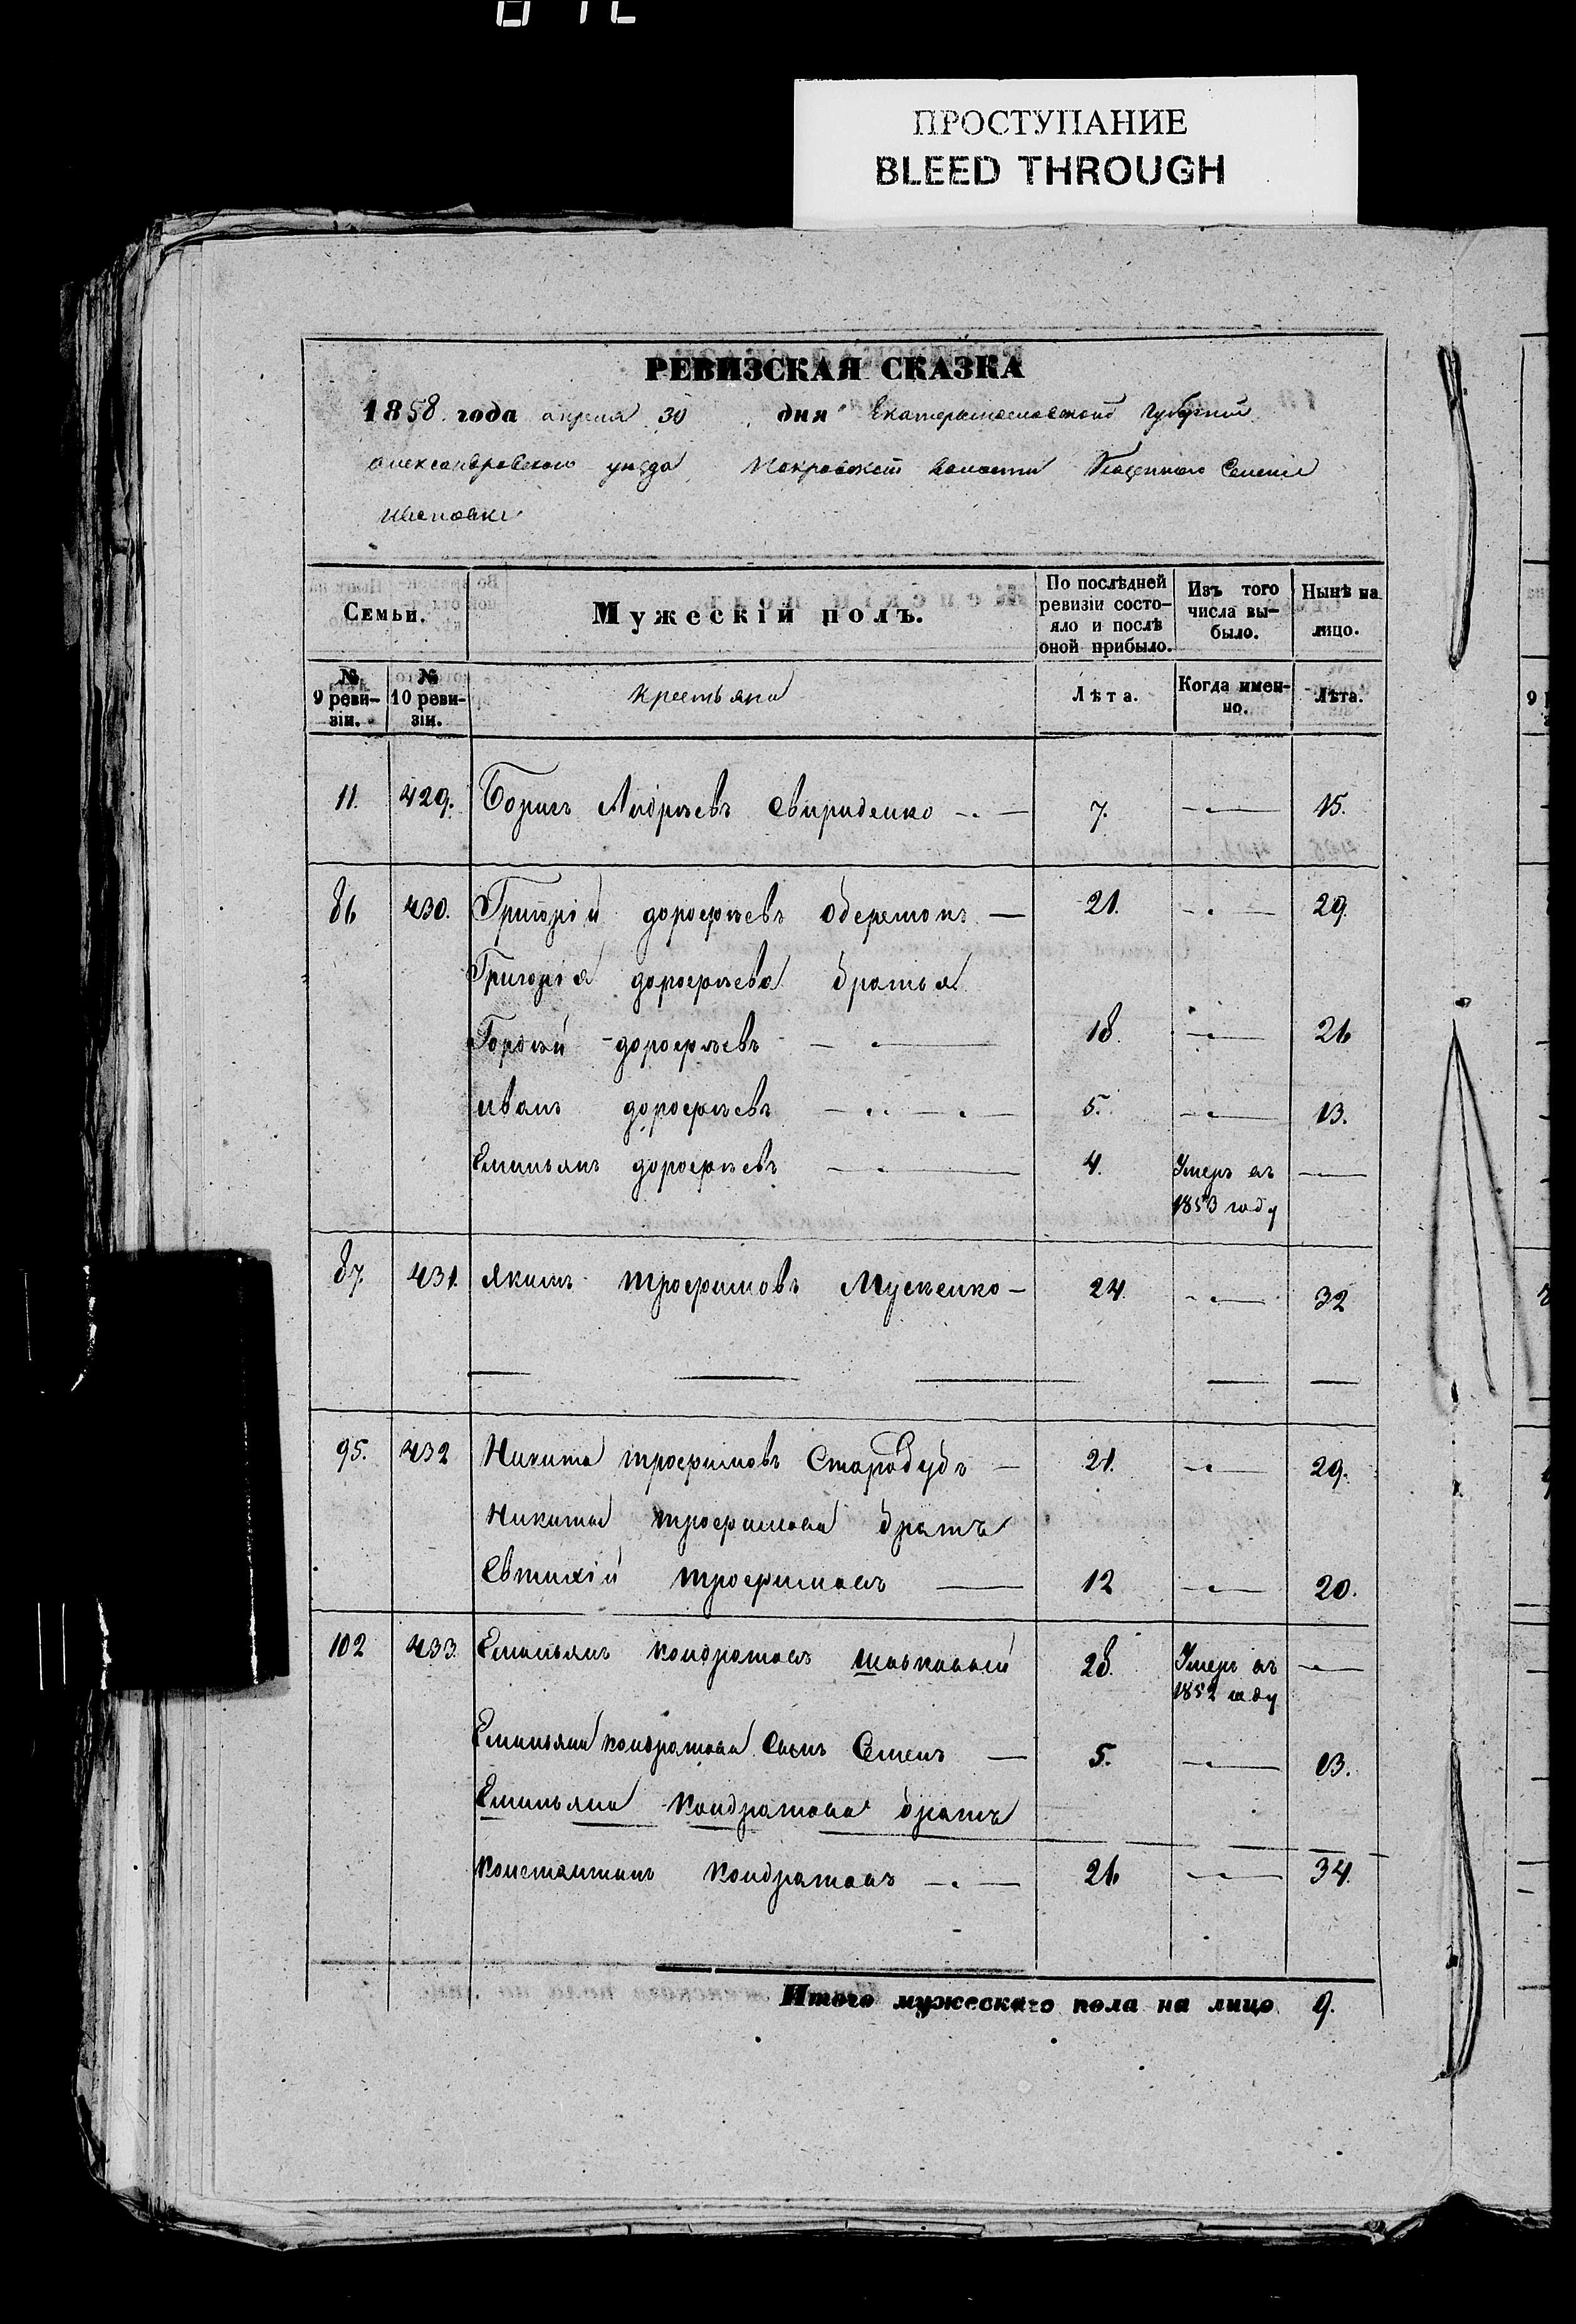 ПРОСТУПАНИЕ
BLEED THROUGH
РЕВИЗСКАЯ СКАЗКА
1858 года апреля 30 дня Екатеринославской Губернии
Александровского уезда Покровской волости Казенного Селения
Ивановки
Семьи.
Мужескій полъ.
По послѣдней ревизіи состо-
яло и послѣ оной прибыло.
Изъ того числа вы-
было.
Нынѣ на лицо.
№ 9 реви-
зіи.
№ 10 реви-
зіи.
Крестьяне
Лѣта.
Когда имен-
но.
Лѣта.
11. 429. Борисъ Андрѣевъ Свириденко 7. 15.
86 430. Григорій дорофѣевъ Оберемокъ 21. 29.
Григорія дорофѣева братья
Гордѣй дорофѣевъ 18. 26
иванъ дорофѣевъ 5. 13.
Емильянъ дорофѣевъ 4. Умеръ въ
1853 году
87 431. Якимъ трофимовъ 24. 32
95. 432 Никита трофимовъ Стародубъ 21. 29.
Никиты трофимова братъ
Евтихій трофимовъ 12 20.
102 433. Емильянъ кондратовъ 28. Умеръ въ
1852 году
Емильяна кондратова Сынъ Семенъ 5. 13.
Емильяна Кондратова братъ
Константинъ Кондратовъ 26 34.
Итого мужескаго пола на лицо 9.